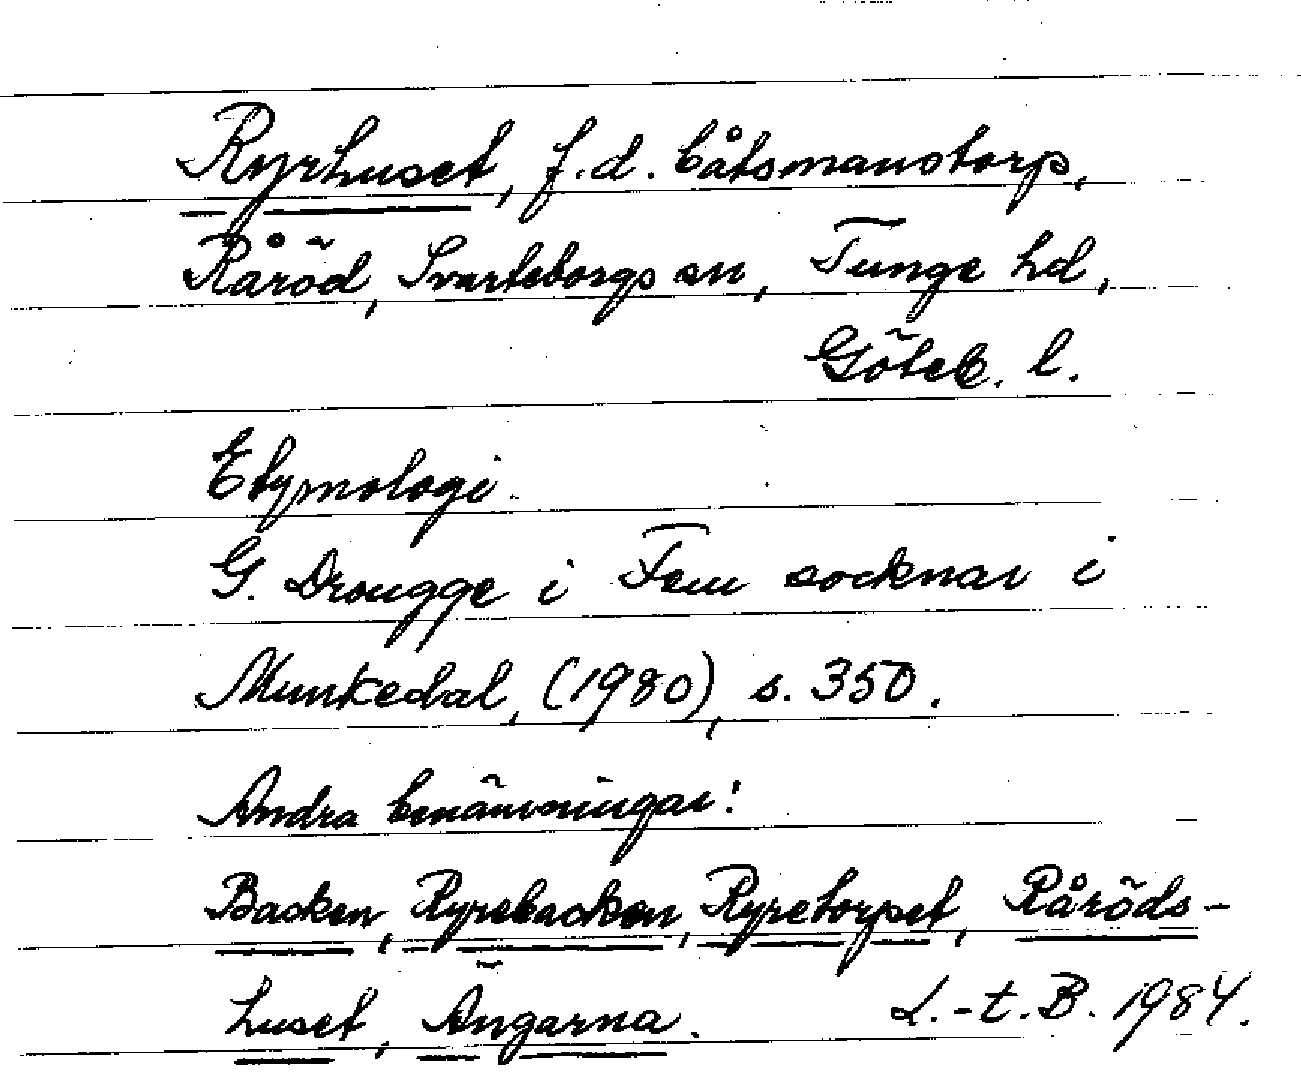 Ryrhuset, f.d. båtsmanstorp,
Råröd, Svarteborgs sn, Tunge hd,
Göteb. l.
Etymologi.
G. Drougge i Fem socknar i
Munkedal, (1980), s. 350.
Andra benämningar:
Backen, Ryrebacken, Ryretorpet, Råröds-
huset, Ängarna.
L.-t. B. 1984.